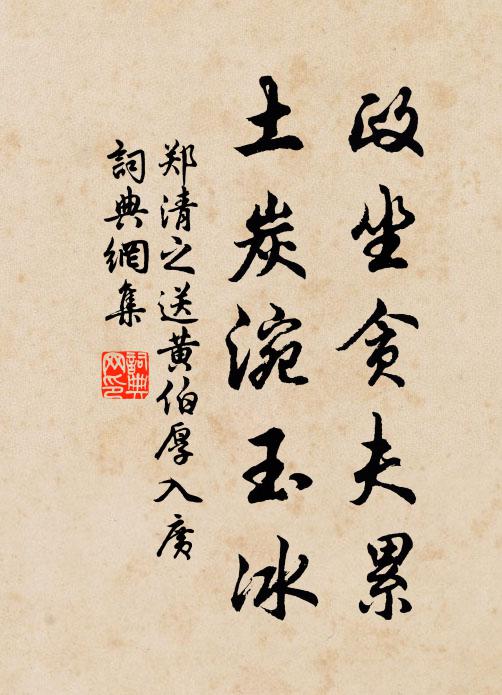 政坐貪夫累
土炭涴玉冰
郑清之送黄伯厚入廣
詞典網集
詞典网印